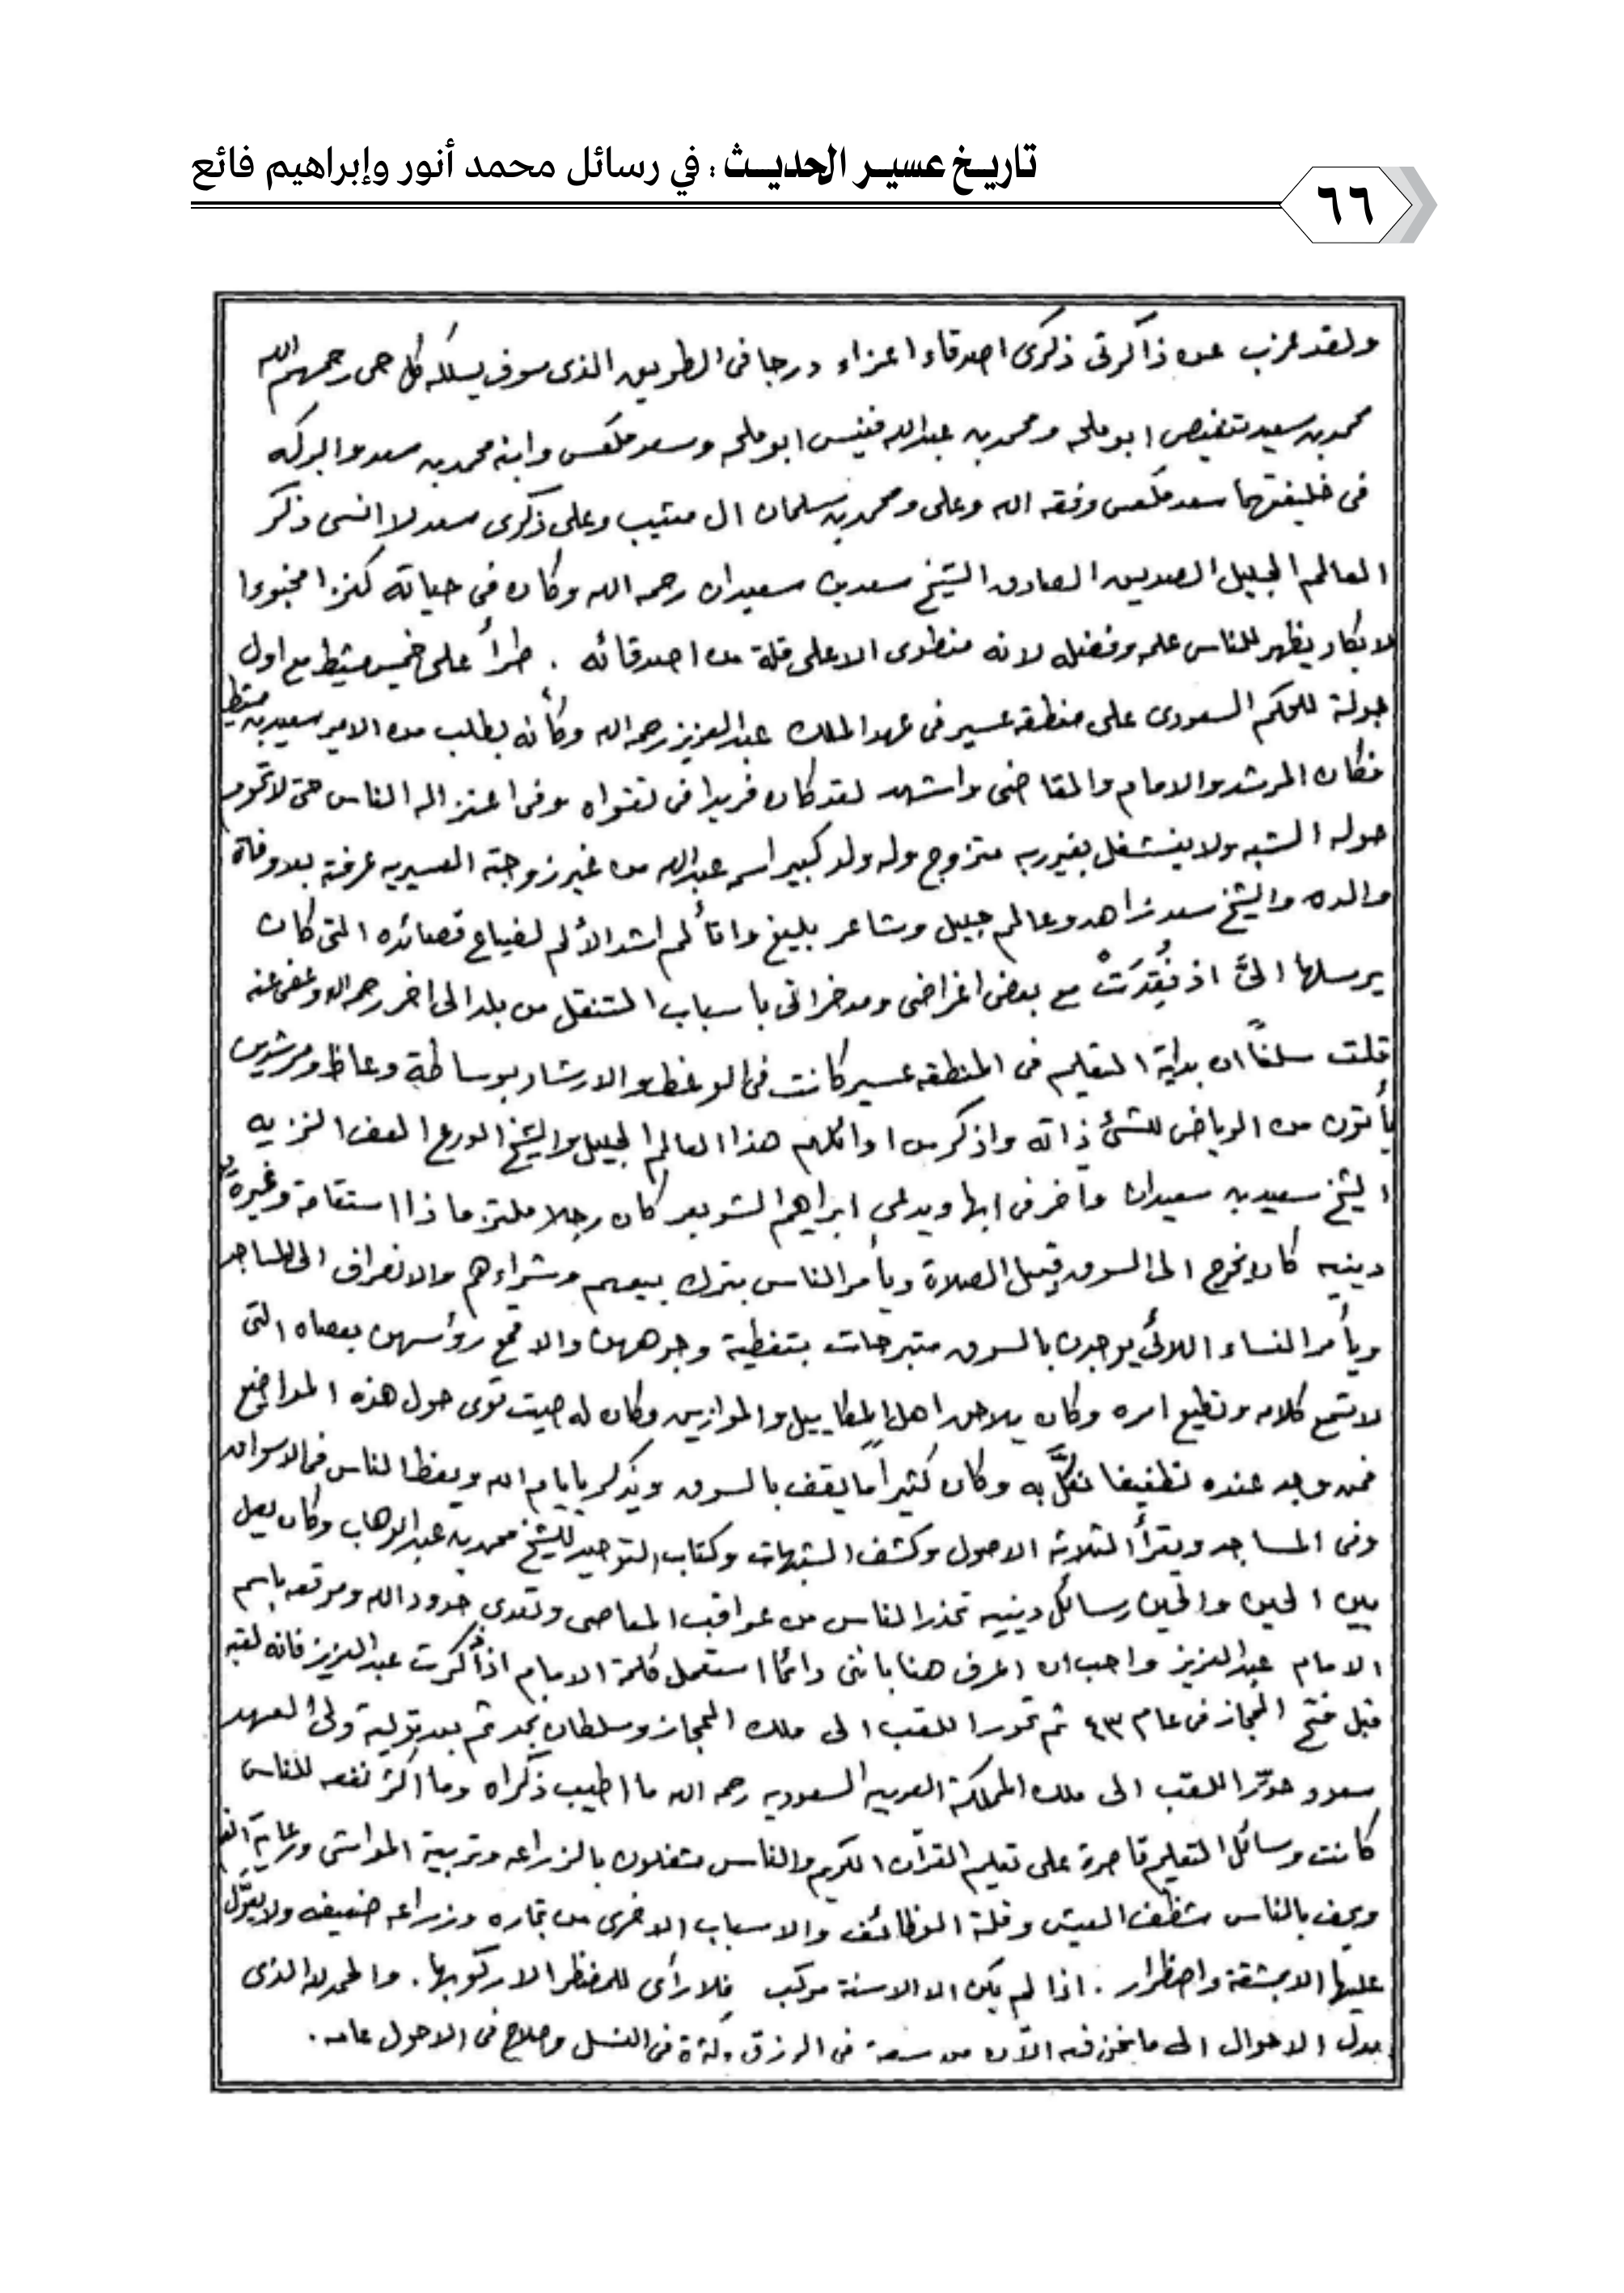 تاريخ عسير الحديث : في رسائل محمد أنور وإبراهيم فائع
٦٦
ولقد عزب عن ذاكرتى ذكرى اصدقاء اعزاء درجا فى الطريق الذى سوف يسلكه كل حى رحمهم الله
محمد بن سعيد ابو ملحه ومحمد بن عبدالله ابو ملحه وسعد وابنه محمد بن سعد والبركه
فى خليفتهما سعد وفقه الله وعلى ومحمد بن سلمان ال وعلى ذكرى سعد لا انسى ذكر
العالم الجليل الصديق الصادق الشيخ سعد بن سعيدان رحمه الله وكان فى حياته كنزا مخبوءا
لا يكاد يظهر للناس علمه وفضله لانه منطوى الا على قلة من اصدقائه . طرأ على خميس مشيط مع اول
جولة للحكم السعودى على منطقة عسير فى عهد الملك عبد العزيز رحمه الله وكأنه بطلب من الامير سعيد بن مشيط
فكان المرشد والامام والقاضى واشهد لقد كان فريدا فى تقواه وفى اعتزاله الناس حتى لا تحوم
حوله الشبه ولا ينشغل بغير ربه متزوج وله ولد كبير اسمه عبدالله من غير زوجته العسيريه عرفته بعد وفاة
والده والشيخ سعد زاهد وعالم جليل وشاعر بليغ واتألم اشد الألم لضياع قصائده التى كان
يرسلها الىَّ اذ فُقِدَتْ مع بعض اغراضى ومدخراتى باسباب التنقل من بلد الى اخر رحمه الله وعفى عنه
قلت سلفاً ان بداية التعليم فى المنطقه عسير كانت فى الوعظ والارشاد بوساطة وعاظ ومرشدين
يأتون من الرياض للشئ ذاته واذكر من اوائلهم هذا العالم الجليل والشيخ الورع العف النزيه
الشيخ سعيد بن سعيدان واخر فى ابها ويدعى ابراهيم الشويعر كان رجلا ملتزما ذا استقامة وغيرة
دينيه كان يخرج الى السوق قبيل الصلاة ويأمر الناس بترك بيعهم وشراءهم والانصراف الى المساجد
ويأمر النساء اللائي يوجدن بالسوق متبرجات بتغطية وجوههن والا قمع رؤسهن بعصاه التى
لا تسمع كلامه وتطيع امره وكان يلاحق اهل المكاييل والموازين وكان له صيت قوى حول هذه المواضيع
فمن وجد عنده تطفيفا نكَّل به وكان كثيراً ما يقف بالسوق ويذكر بايام الله ويعظ الناس فى الاسواق
وفى المساجد ويقرأ الثلاثه الاصول وكشف الشبهات وكتاب التوحيد للشيخ محمد بن عبد الوهاب وكان يصل
بين الحين والحين رسائل دينيه تحذر الناس من عواقب المعاصى وتعدى حدود الله وموقعه باسم
الامام عبد العزيز واحب ان اعرف هنا باننى دائما استعمل كلمة الامام اذا ذكرت عبد العزيز فانه لقبه
قبل فتح الحجاز فى عام ٤٣ ثم تحور اللقب الى ملك الحجاز وسلطان نجد ثم بعد تولية ولى العهد
سعود حوّر اللقب الى ملك المملكة العربيه السعوديه رحمه الله ما اطيب ذكراه وما اكثر نفعه للناس
كانت وسائل التعليم قاصرة على تعليم القرآن الكريم والناس منشغلون بالزراعه وتربية المواشى ورعاية الغنم
ويحف بالناس شظف العيش وقلة الوظائف والاسباب الاخرى من تجاره وزراعه ضعيفه ولا يعوّل
عليها الا بمشقة واضطرار . اذا لم يكن الا الاسنة مركب فلا رأى للمضطر الا ركوبها . والحمد لله الذى
بدل الاحوال الى ما نحن فيه الآن من سعة فى الرزق وكثرة فى النسل وصلاح فى الاحول عامه .